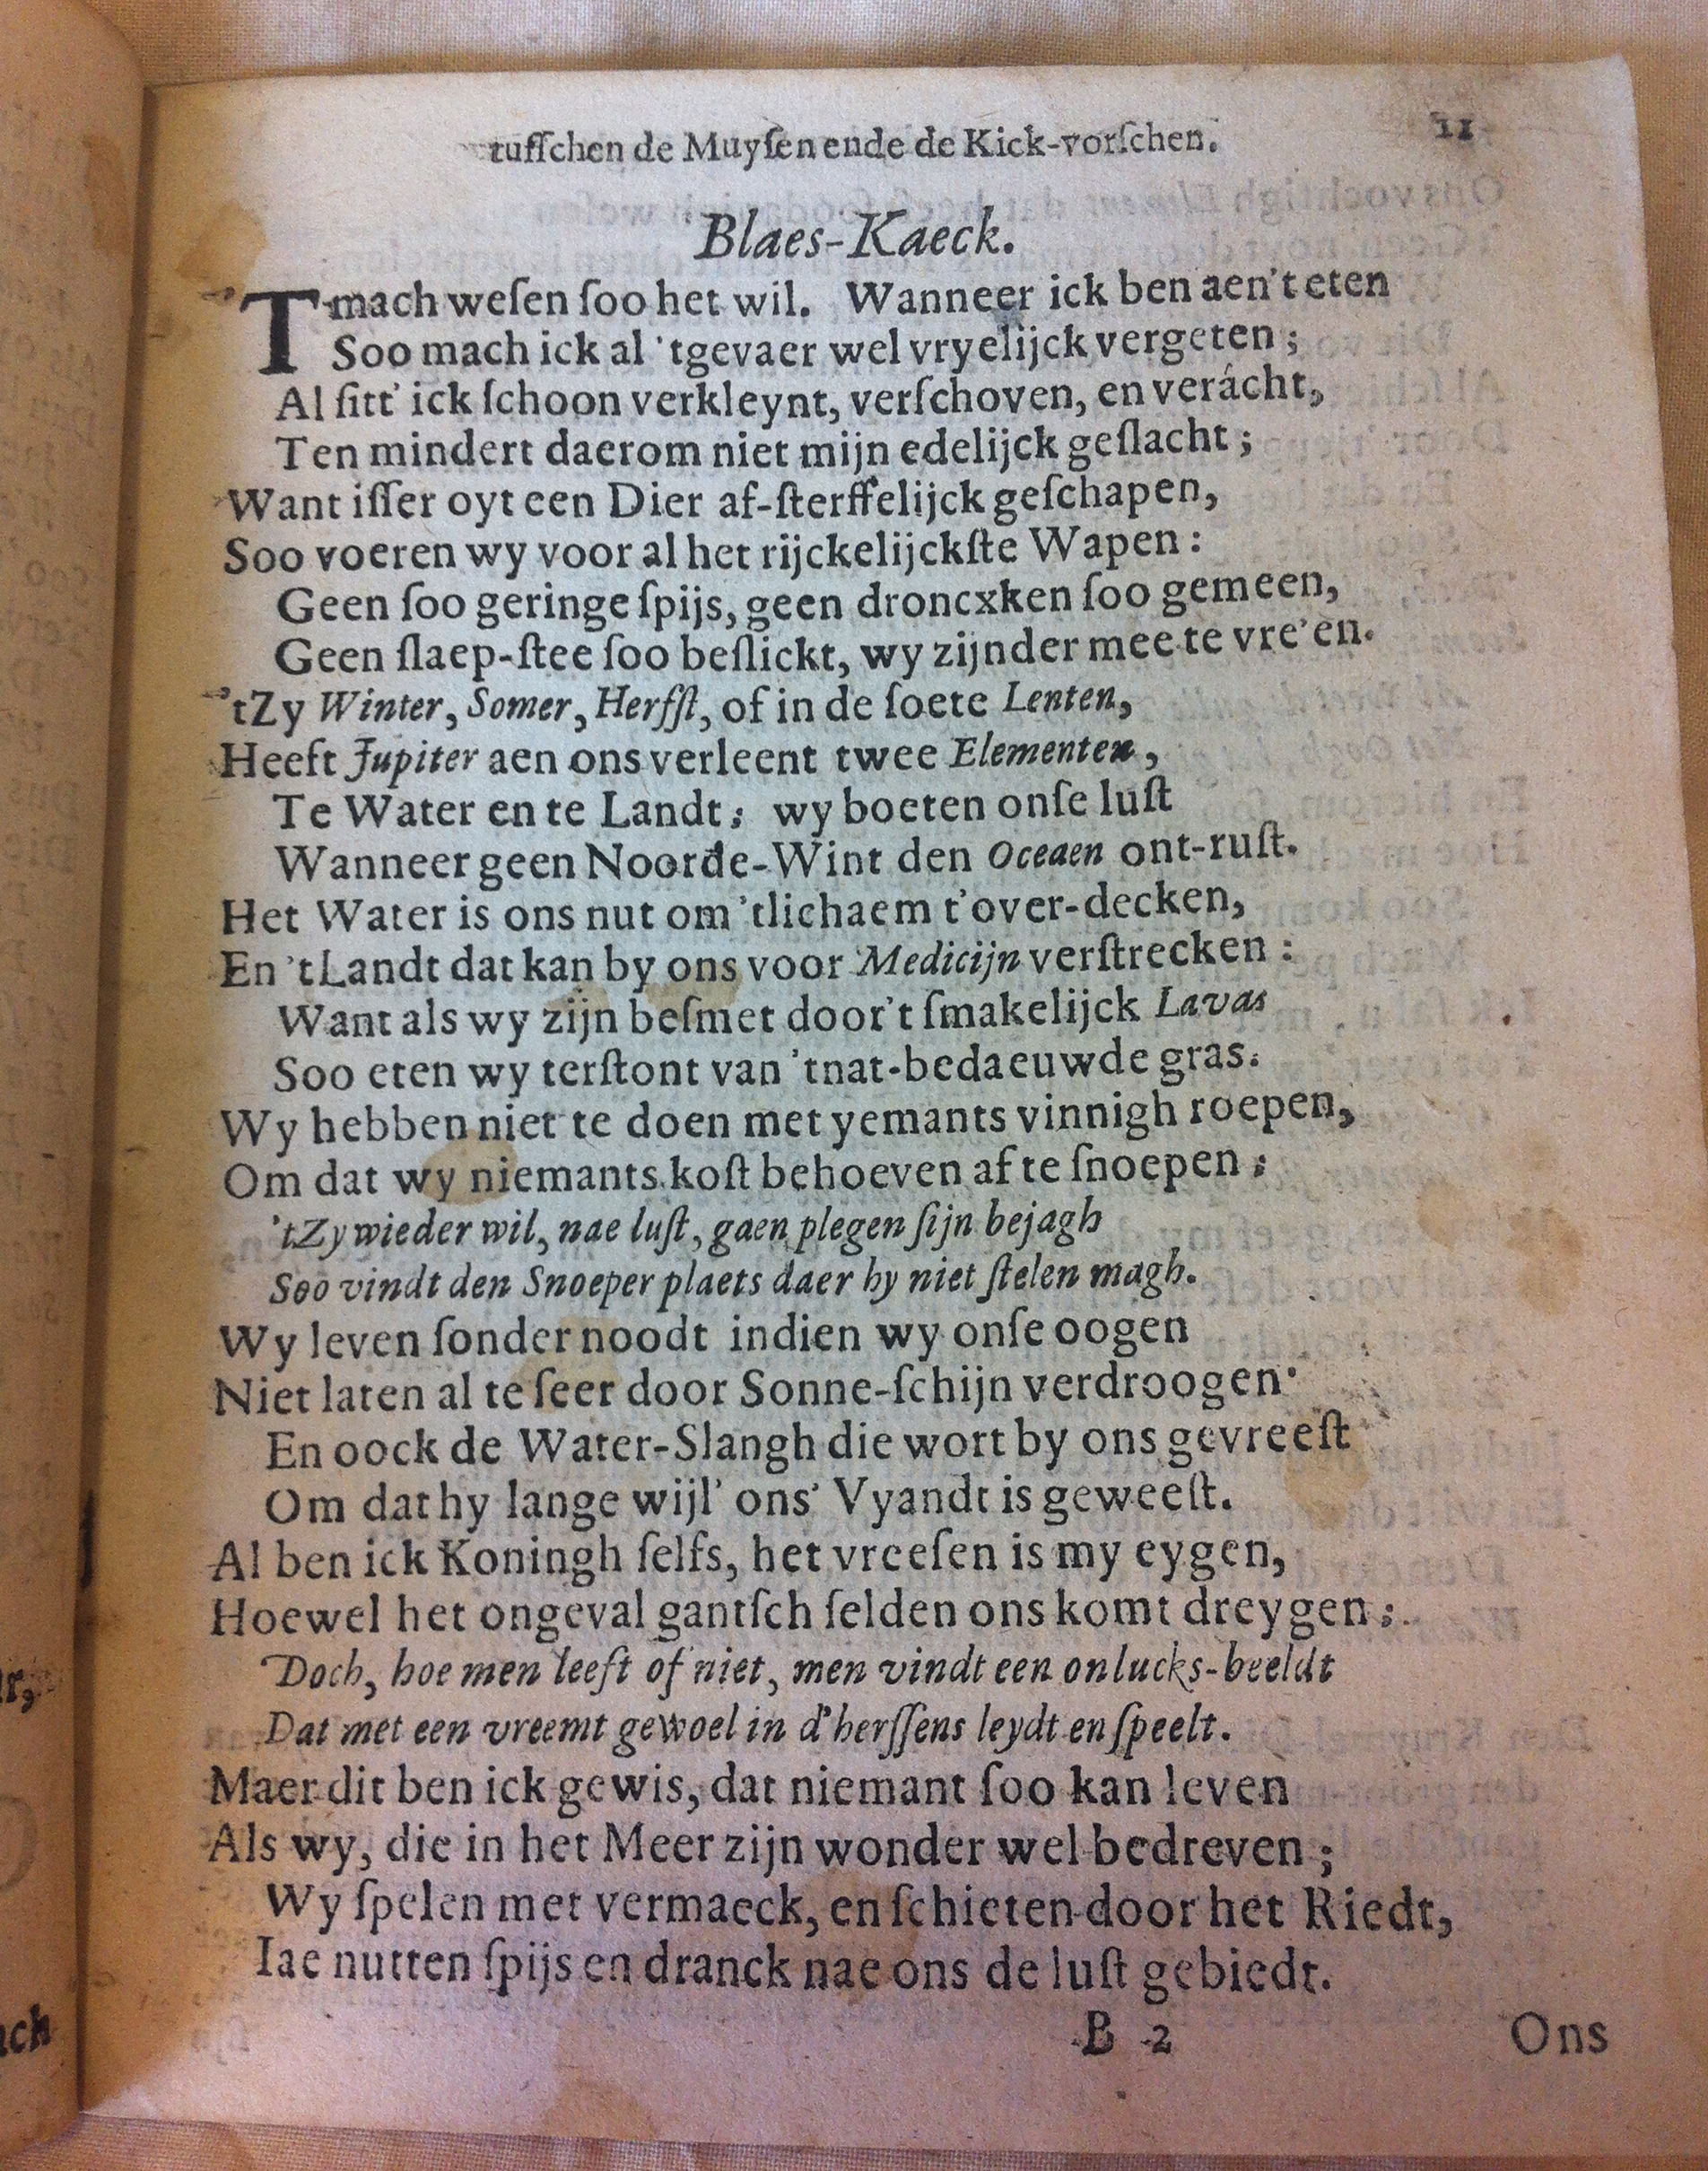 tuſſchen de Muyſen ende de Kick-vorſchen. 11
Blaes-Kaeck.
'T mach weſen ſoo het wil. Wanneer ick ben aen't eten
Soo mach ick al 'tgevaer wel vryelijck vergeten;
Al ſitt' ick ſchoon verkleynt, verſchoven, en verácht,
Ten mindert daerom niet mijn edelijck geſlacht;
Want iſſer oyt een Dier af-ſterffelijck geſchapen,
Soo voeren wy voor al het rijckelijckſte Wapen:
Geen ſoo geringe ſpijs, geen droncxken ſoo gemeen,
Geen ſlaep-ſtee ſoo beſlickt, wy zijnder mee te vre'en.
'tZy Winter, Somer, Herfſt, of in de ſoete Lenten,
Heeft Jupiter aen ons verleent twee Elementen,
Te Water en te Landt; wy boeten onſe luſt
Wanneer geen Noorde-Wint den Oceaen ont-ruſt.
Het Water is ons nut om 'tlichaem t'over-decken,
En 'tLandt dat kan by ons voor Medicijn verſtrecken:
Want als wy zijn beſmet door't ſmakelijck Lavas
Soo eten wy terſtont van 'tnat-bedaeuwde gras.
Wy hebben niet te doen met yemants vinnigh roepen,
Om dat wy niemants koſt behoeven af te ſnoepen;
'tZy wieder wil, nae luſt, gaen plegen ſijn bejagh
Soo vindt den Snoeper plaets daer hy niet ſtelen magh.
Wy leven ſonder noodt indien wy onſe oogen
Niet laten al te ſeer door Sonne-ſchijn verdroogen·
En oock de Water-Slangh die wort by ons gevreeſt
Om dat hy lange wijl' ons' Vyandt is geweeſt.
Al ben ick Koningh ſelfs, het vreeſen is my eygen,
Hoewel het ongeval gantſch ſelden ons komt dreygen;
Doch, hoe men leeft of niet, men vindt een onlucks-beeldt
Dat met een vreemt gewoel in d'herſſens leydt en ſpeelt.
Maer dit ben ick gewis, dat niemant ſoo kan leven
Als wy, die in het Meer zijn wonder wel bedreven;
Wy ſpelen met vermaeck, en ſchieten door het Riedt,
Iae nutten ſpijs en dranck nae ons de luſt gebiedt.
B 2 Ons